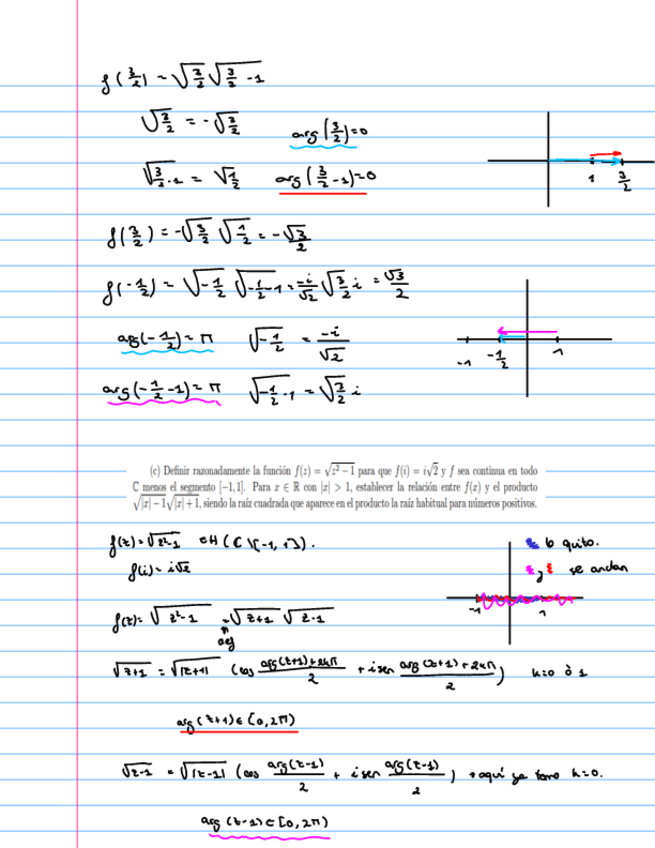 f(3/2) = √(3/2) √(3/2 - 1)
√(3/2) = -√(3/2)
arg(3/2)=0
√(3/2 - 1) = √(1/2)
arg(3/2 - 1)=0
1 3/2
f(3/2) = -√(3/2) √(1/2) = -√3/2
f(-1/2) = √(-1/2) √(-1/2 - 1) = -i/√2 √(3/2) i = √3/2
arg(-1/2) = π √(-1/2) = -i/√2
-1 -1/2 1
arg(-1/2 - 1) = π √(-1/2 - 1) = √(3/2) i
(c) Definir razonadamente la función f(z) = √(z² − 1) para que f(i) = i√2 y f sea continua en todo
ℂ menos el segmento [−1, 1]. Para x ∈ ℝ con |x| > 1, establecer la relación entre f(x) y el producto
√(|x| − 1)√(|x| + 1), siendo la raíz cuadrada que aparece en el producto la raíz habitual para números positivos.
f(z) = √(z²-1) ∈ H(ℂ \ [-1, 1]).
lo quito.
f(i) = i√2
y se anulan
-1 1
f(z) = √(z²-1) = √(z+1) √(z-1)
√(z+1) = √|z+1| (cos (arg(z+1)+2kπ)/2 + i sen (arg(z+1)+2kπ)/2) k=0 ò 1
arg(z+1) ∈ [0, 2π)
√(z-1) = √|z-1| (cos arg(z-1)/2 + i sen arg(z-1)/2) → aquí ya tomo k=0.
arg(z-1) ∈ [0, 2π)